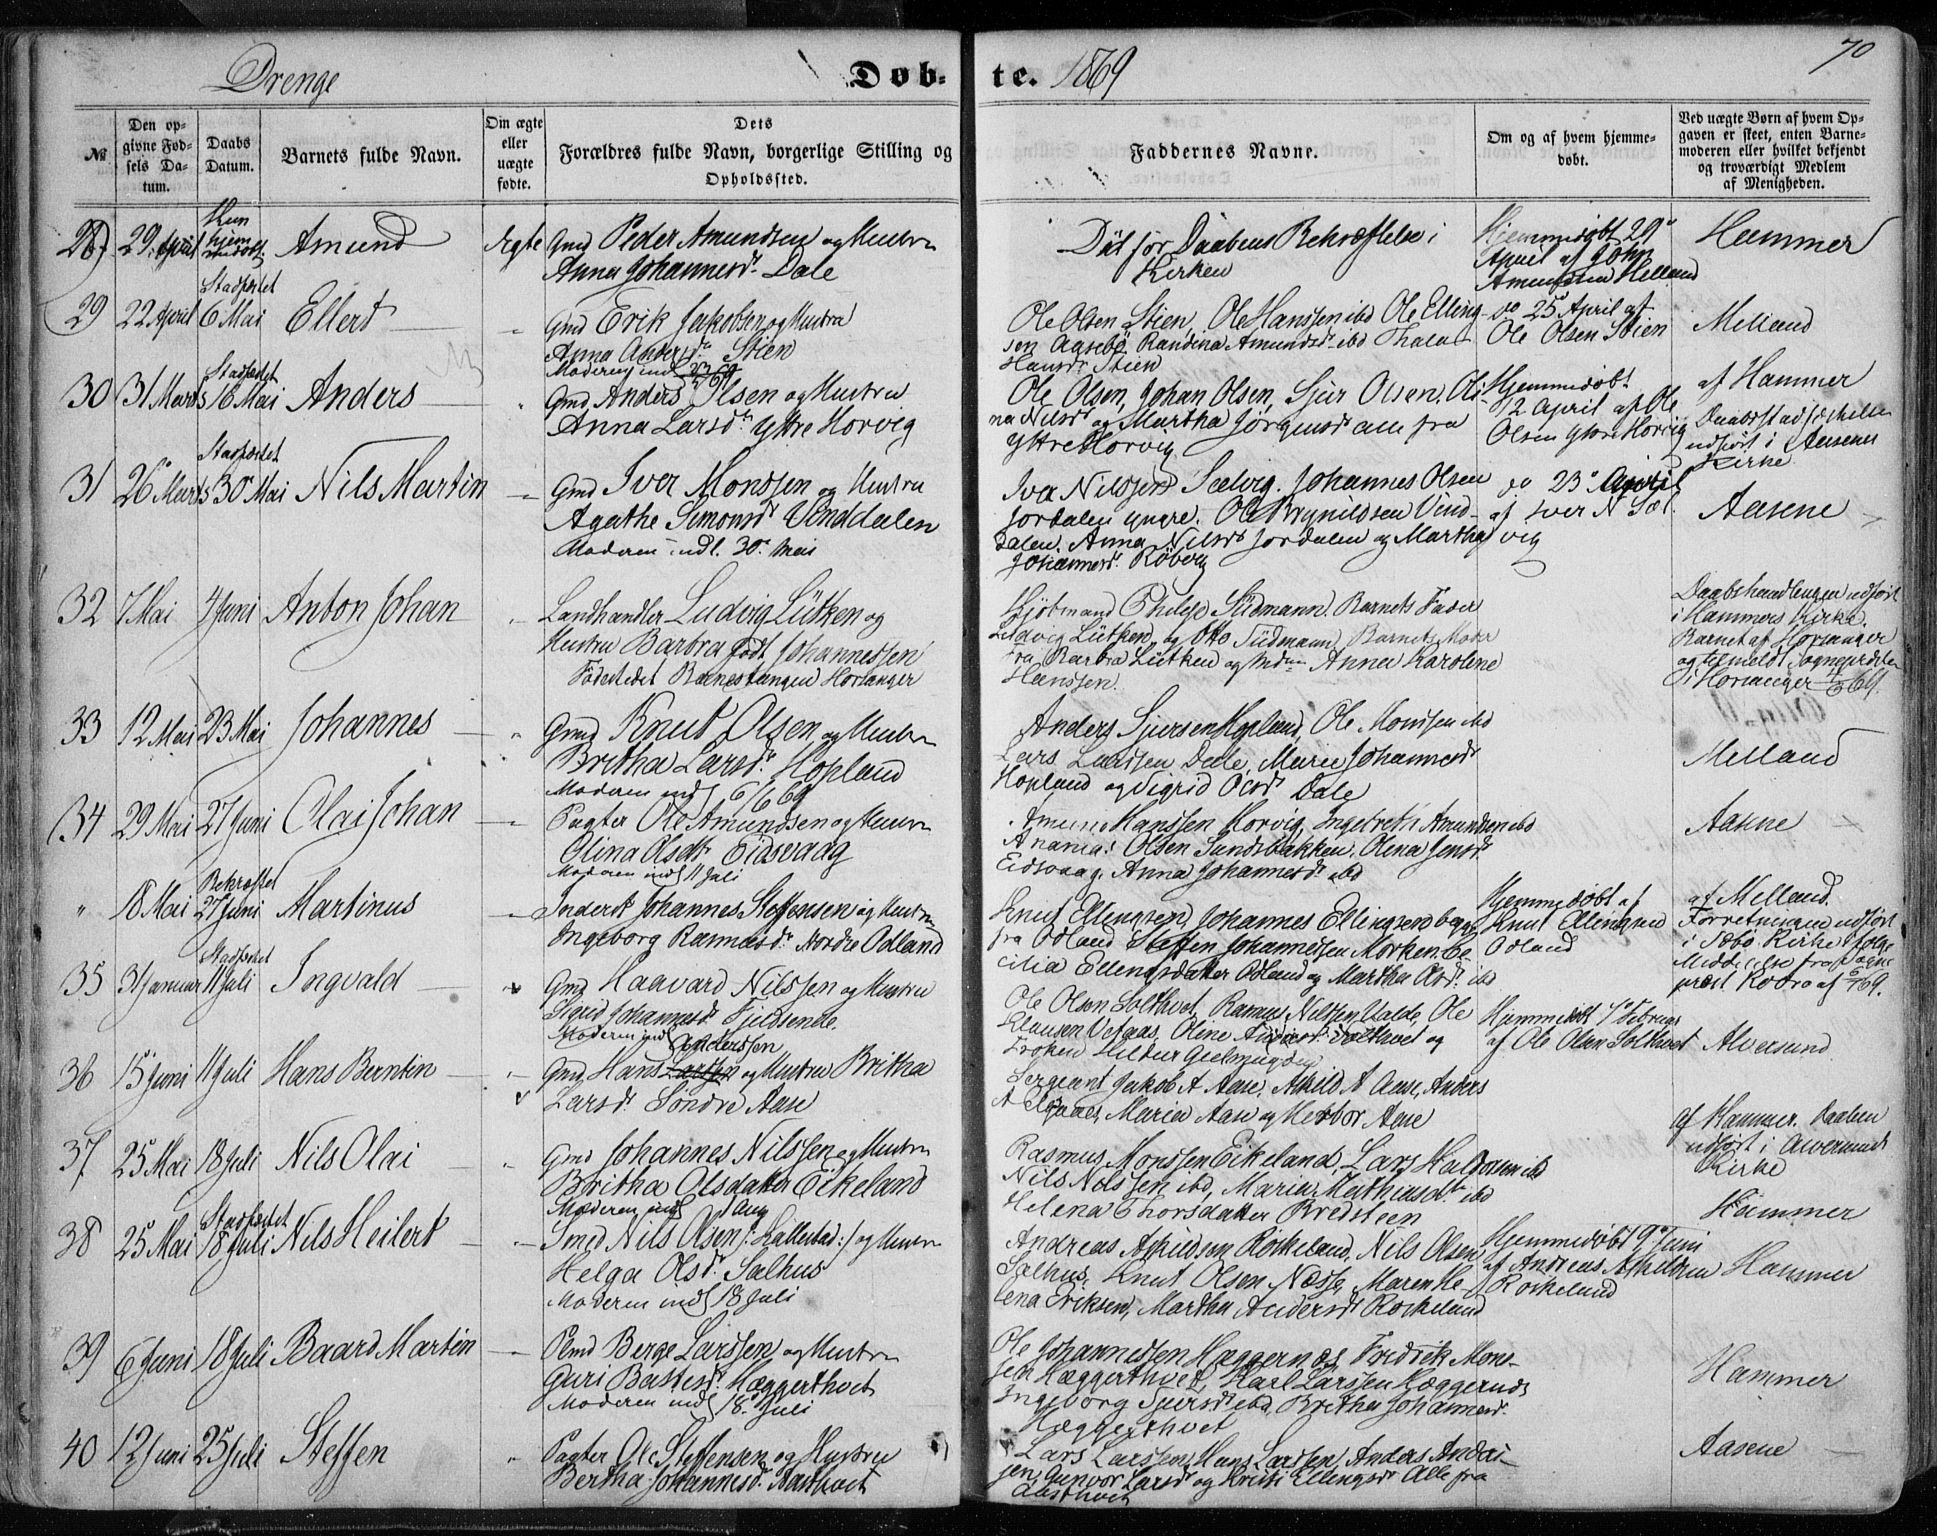 Drenge
Døb-
te. 1869
70
№
Den op-
givne Fød-
sels Da-
tum.
Daabs
Datum.
Barnets fulde Navn.
Om ægte
eller
uægte
fødte.
Dets
Forældres fulde Navn, borgerlige Stilling og
Opholdssted.
Faddernes Navne.
Om og af hvem hjemme-
døbt.
Ved uægte Børn af hvem Op-
gaven er skeet, enten Barne-
moderen eller hvilket bekjendt
og troværdigt Medlem
af Menigheden.
28 29 April Kun hjemmedøbt Amund Ægte Gmd Peder Amundsen og Hustru
Anna Johannesdr Dale
Død før Daabens Bekræftelse i
Kirken
Hjemmedøbt 29de
April af John
Amundsen Helland
Hammer
29 22 April Stadfæstet 6 Mai Ellert - " Gmd Erik Jakobsen og Hustru
Anna Andersdr Stien
Moderen indl 23/5 69
Ole Olsen Stien, Ole Hanssen ibd Ole Elling-
sen Aasebø Randina Amundsdr ibd
Hansdr Stien
do 25 April af
Ole Olsen Stien
Melland
30 31 Marts Stadfæstet 16 Mai Anders - " Gmd Anders Olsen og Hustru
Anna Larsdr Yttre Horvig
Ole Olsen, Johan Olsen, Sjur Olsen, Oli-
na Nilsdr og Martha Jørgensdr alle fra
Yttre Horvig
Hjemmedøbt
12 April af Ole
Olsen Yttre Horvig
af Hammer
Daabsstadfæstelsen
udført i Aasenes
Kirke
31 26 Marts Stadfæstet 30 Mai Nils Martin - Gmd Iver Monssen og Hustru
Agathe Simonsdr Vinddalen
Moderen indl. 30te Mai
Iver Nilssen Sælvig. Johannes Olsen
Jordalen yngre. Ole Brynildsen Vind-
dalen. Anna Nilsdr Jordalen og Martha
Johannesdr Røberg
do 23de April
af Iver N Sæl-
vig
Aasene
32 7 Mai 4 Juni Anton Johan " Landhandler Ludvig Lütken og
Hustru Barbra født Johannessen
Fødestedet Barnestangen Hosanger
Philip Südmann. Barnets Fader
Ludvig Lütken og Otto Südmann, Barnets Moder
Fru Barbra Lütken og Mdm Anna Karoline
Hanssen.
Daabshandlingen udført
i Hammers Kirke.
Barnet af Hosanger
og tilmeldt Sognepræsten
i Hosanger 4/6 69.
33 12 Mai 23 Mai Johannes - " Gmd Knut Olsen og Hustru
Britha Larsdr. Hopland
Moderen indl 6/6 69
Anders Sjursen Hopland, Ole Monssen ibd
Lars Larssen Dale, Mari Johannesdr
Hopland og Sigrid Olsdr Dale
Melland
34 29 Mai 27 Juni Olai Johan - Pagter Ole Amundsen og Hustru
Olina Olsdr Eidsvaag
Moderen indl 11 Juli
Hanssen Horvig, Ingebreth Amundsen ibd
Ananias Olsen Sundsbakken. Olena Jensdr
Eidsvaag. Anna Johannesdr ibd
Aasene
" 18 Mai Bekræftet 27 Juni Martinus - Inderst Johannes Steffensen og Hustru
Ingeborg Rasmusdr Nordre Odland
Knut Ellingsen, Johannes Ellingsen begge
fra Odland Steffen Johannessen Morken. Ce-
cilia Ellingsdatter Odland og Martha Olsdr. ibd
Hjemmedøbt af
Knut Ellingsen
Odland
af Melland.
Forretningen udført
i Sæbø Kirke ifølge
Meddelelse fra Sogne-
præst
35 31 Januar Stadfæstet 11 Juli Ingvald - Gmd Haavard Nilssen og Hustru
Sigrid Johannesdr Fjeldsende
Moderen indl
Ole Olsen Solthvet, Rasmus Nilssen Valde, Ole
Klausen Vefaas, Oline Solthvet og
Frøken Hildur Gjelmuyden
Hjemmedøbt 7de Februar
af Ole Olsen Solthvet
Alversund
36 15 Juni 11 Juli Hans Berntin - Gmd Hans Anderssen og Hustru Britha
Larsdr Søndre Aase
Sergeant Jakob A Aase, Askild A Aase, Anders
A Maria Aase og Herbor Aase
37 25 Mai 18 Juli Nils Olai - " Gmd Johannes Nilssen og Hustru
Britha Olsdatter Eikeland
Moderen indl 1 Aug
Rasmus Monssen Eikeland, Lars Haldorsen ibd
Nils Nilssen ibd, Maria Mathiasdr ibd
Helena Thorsdatter Bredsteen
af Hammer. Daaben
udført i Alversunds
Kirke
Hammer
38 25 Mai Stadfæstet 18 Juli Nils Heilert - Smed Nils Olsen /: Kallestad :/ og Hustru
Helga Olsdr. Salhus
Moderen indl 18 Juli
Andreas Askildsen Roskeland, Nils Olsen
Salhus, Knut Olsen Næsse, Maren He-
lena Eriksen, Martha Andersdr Roskeland
Hjemmedøbt 9de Juni
af Andreas Askildsen
Roskeland
Hammer
39 6 Juni 18 Juli Baard Martin - Pmd Berge Larssen og Hustru
Guri Baltesdr. Hæggerthvet
Moderen indl 18 Juli
Ole Johannessen Hæggernæs, Fredrik Mons-
sen Hæggerthvet, Karl Larssen Hæggernæs
Ingeborg Sjursdr ibd, Britha Johannesdr.
Hæggerthvet
Hammer
40 12 Juni 25 Juli Steffen " Pagter Ole Steffensen og Hustru
Bertha Johannesdr.
Lars Larssen, Hans Larssen, Anders Andas-
sen, Gunvor Larsdr og Kristi Ellingsdr Alle fra
Aasene